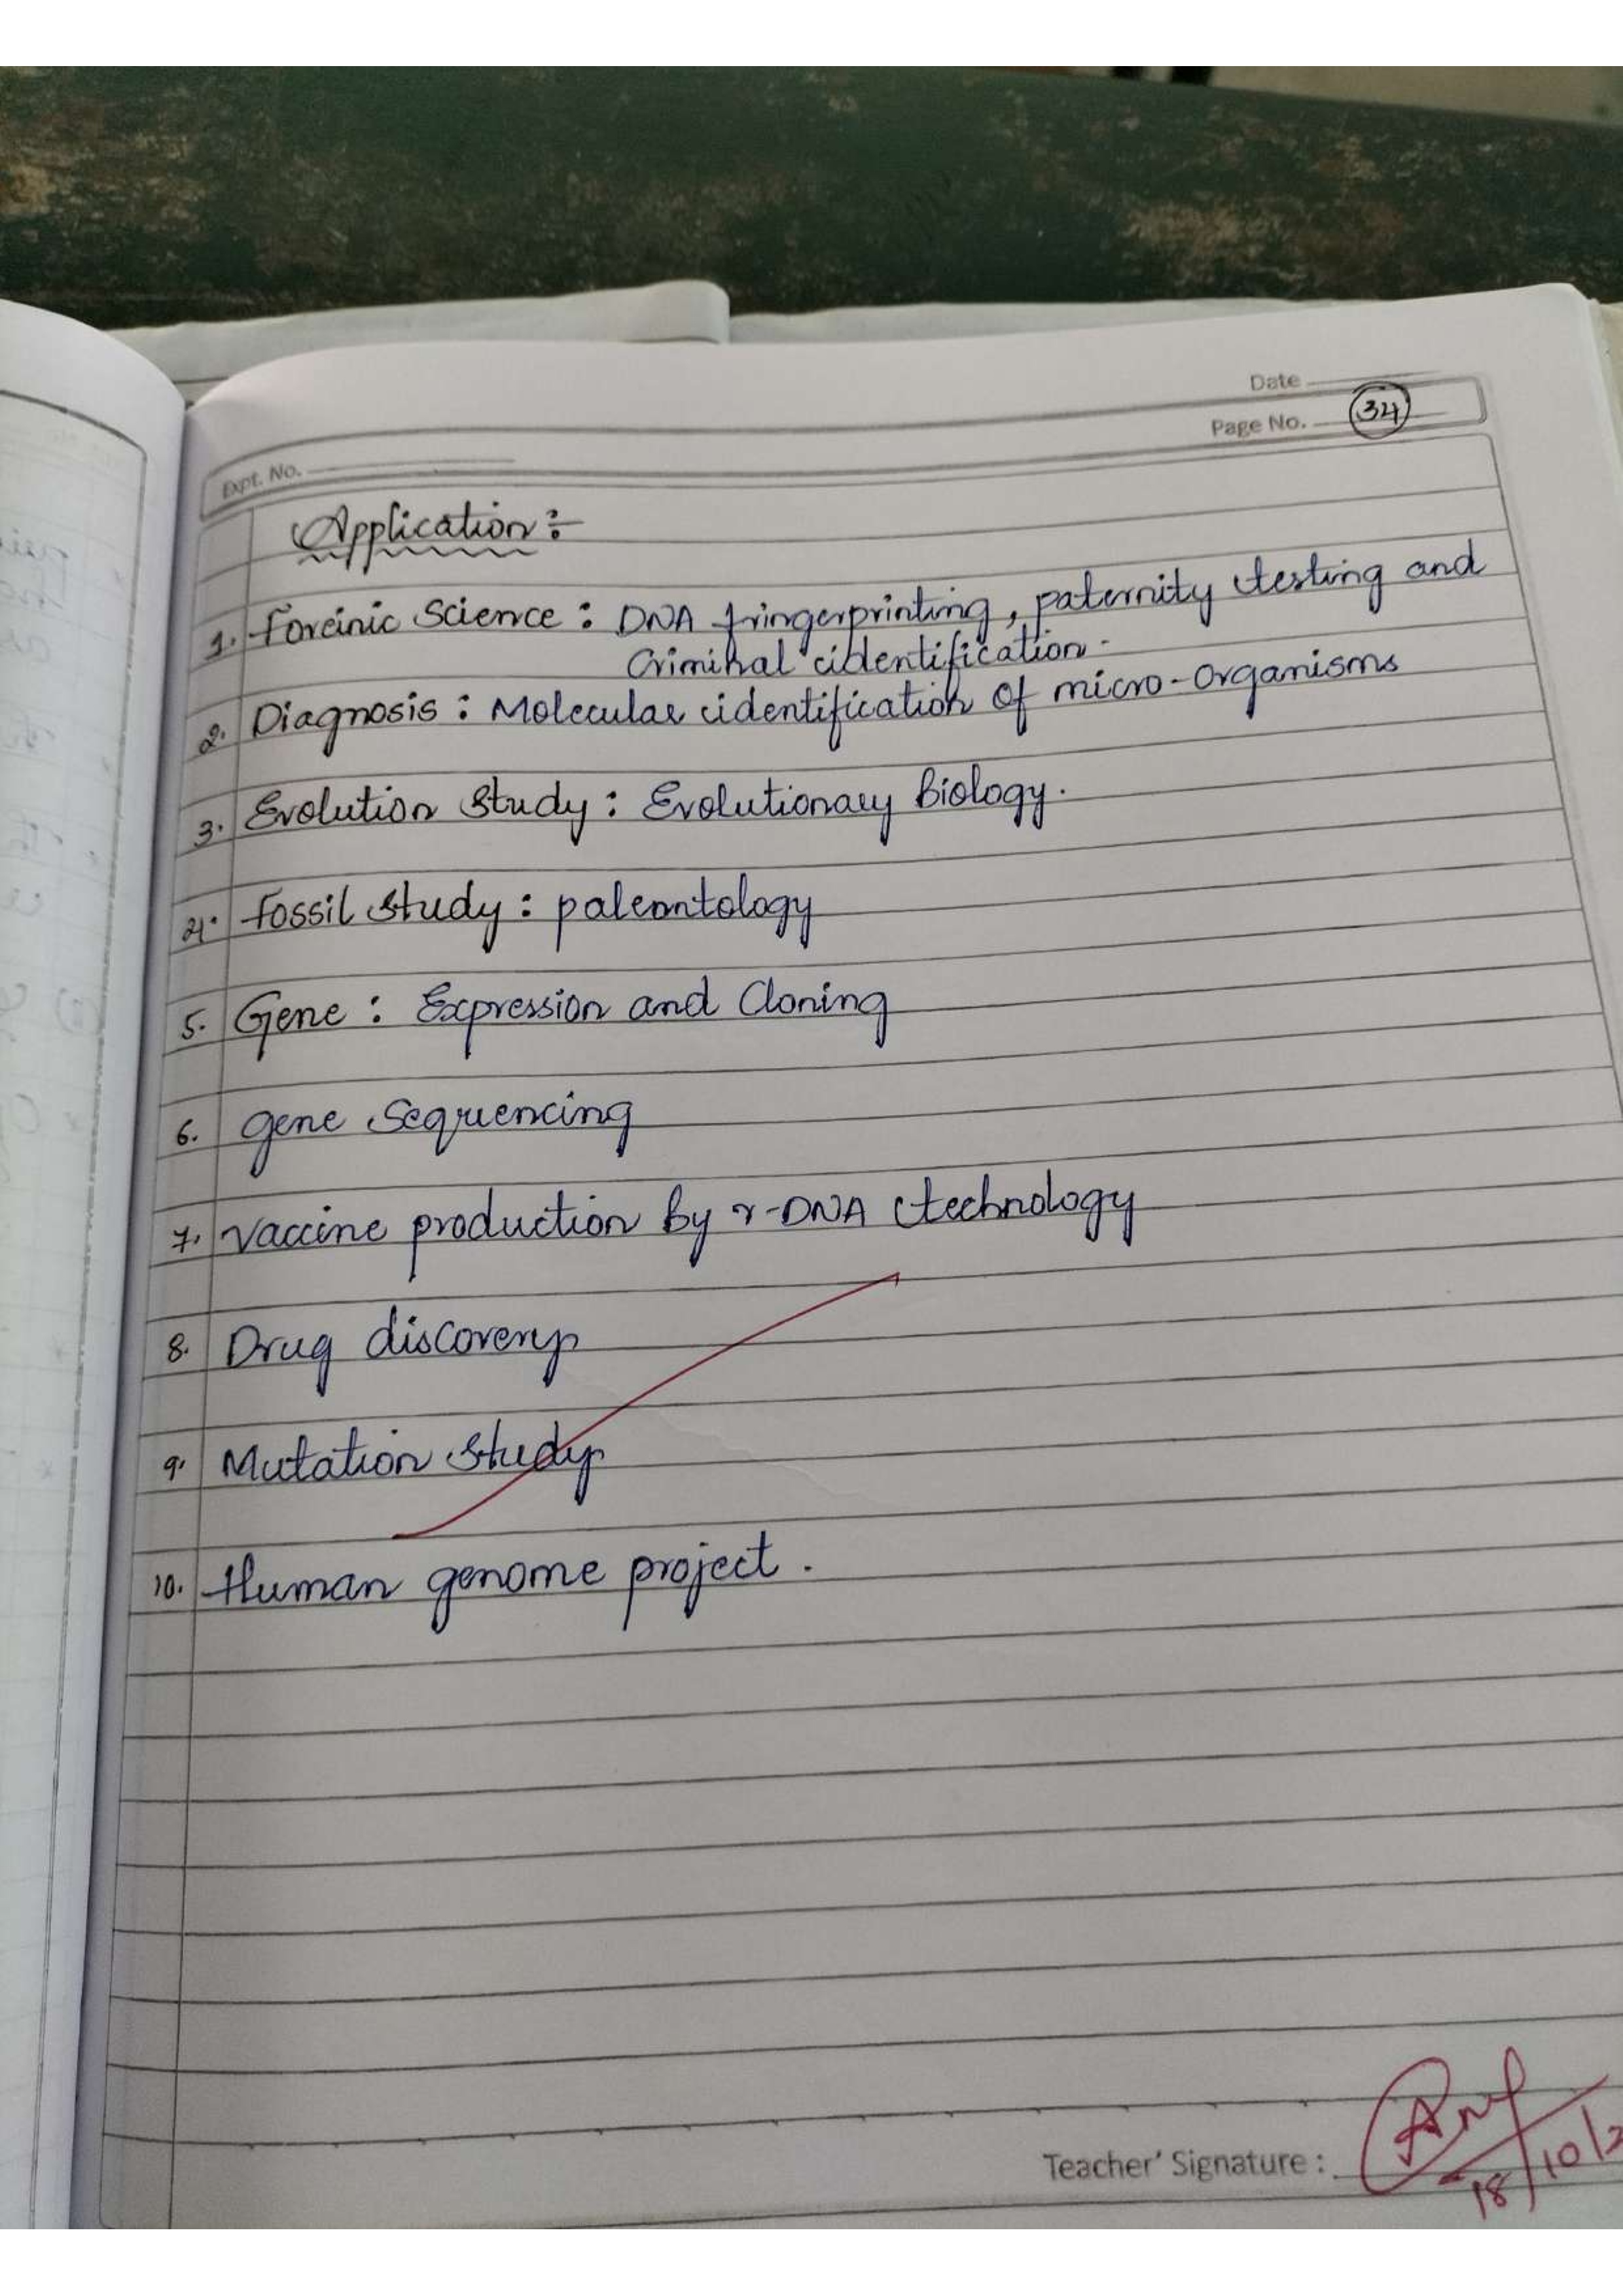 Date
Page No. 34
Expt. No.
Application :-
1. Foreinic Science : DNA fringerprinting, paternity testing and
Criminal identification.
2. Diagnosis : Molecular identification of micro-organisms
3. Evolution Study : Evolutionary Biology.
4. Fossil study : paleontology
5. Gene : Expression and Cloning
6. gene Sequencing
7. Vaccine production by r-DNA technology
8. Drug discovery
9. Mutation study
10. Human genome project.
Teacher' Signature :
18/10/2